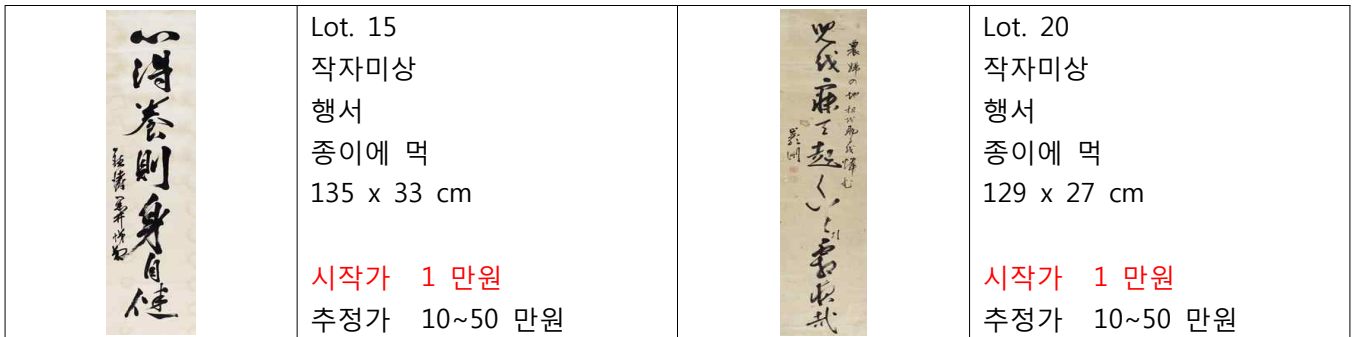 心得養則身自健
Lot. 15
작자미상
행서
종이에 먹
135 x 33 cm
시작가 1 만원
추정가 10~50 만원
Lot. 20
작자미상
행서
종이에 먹
129 x 27 cm
시작가 1 만원
추정가 10~50 만원